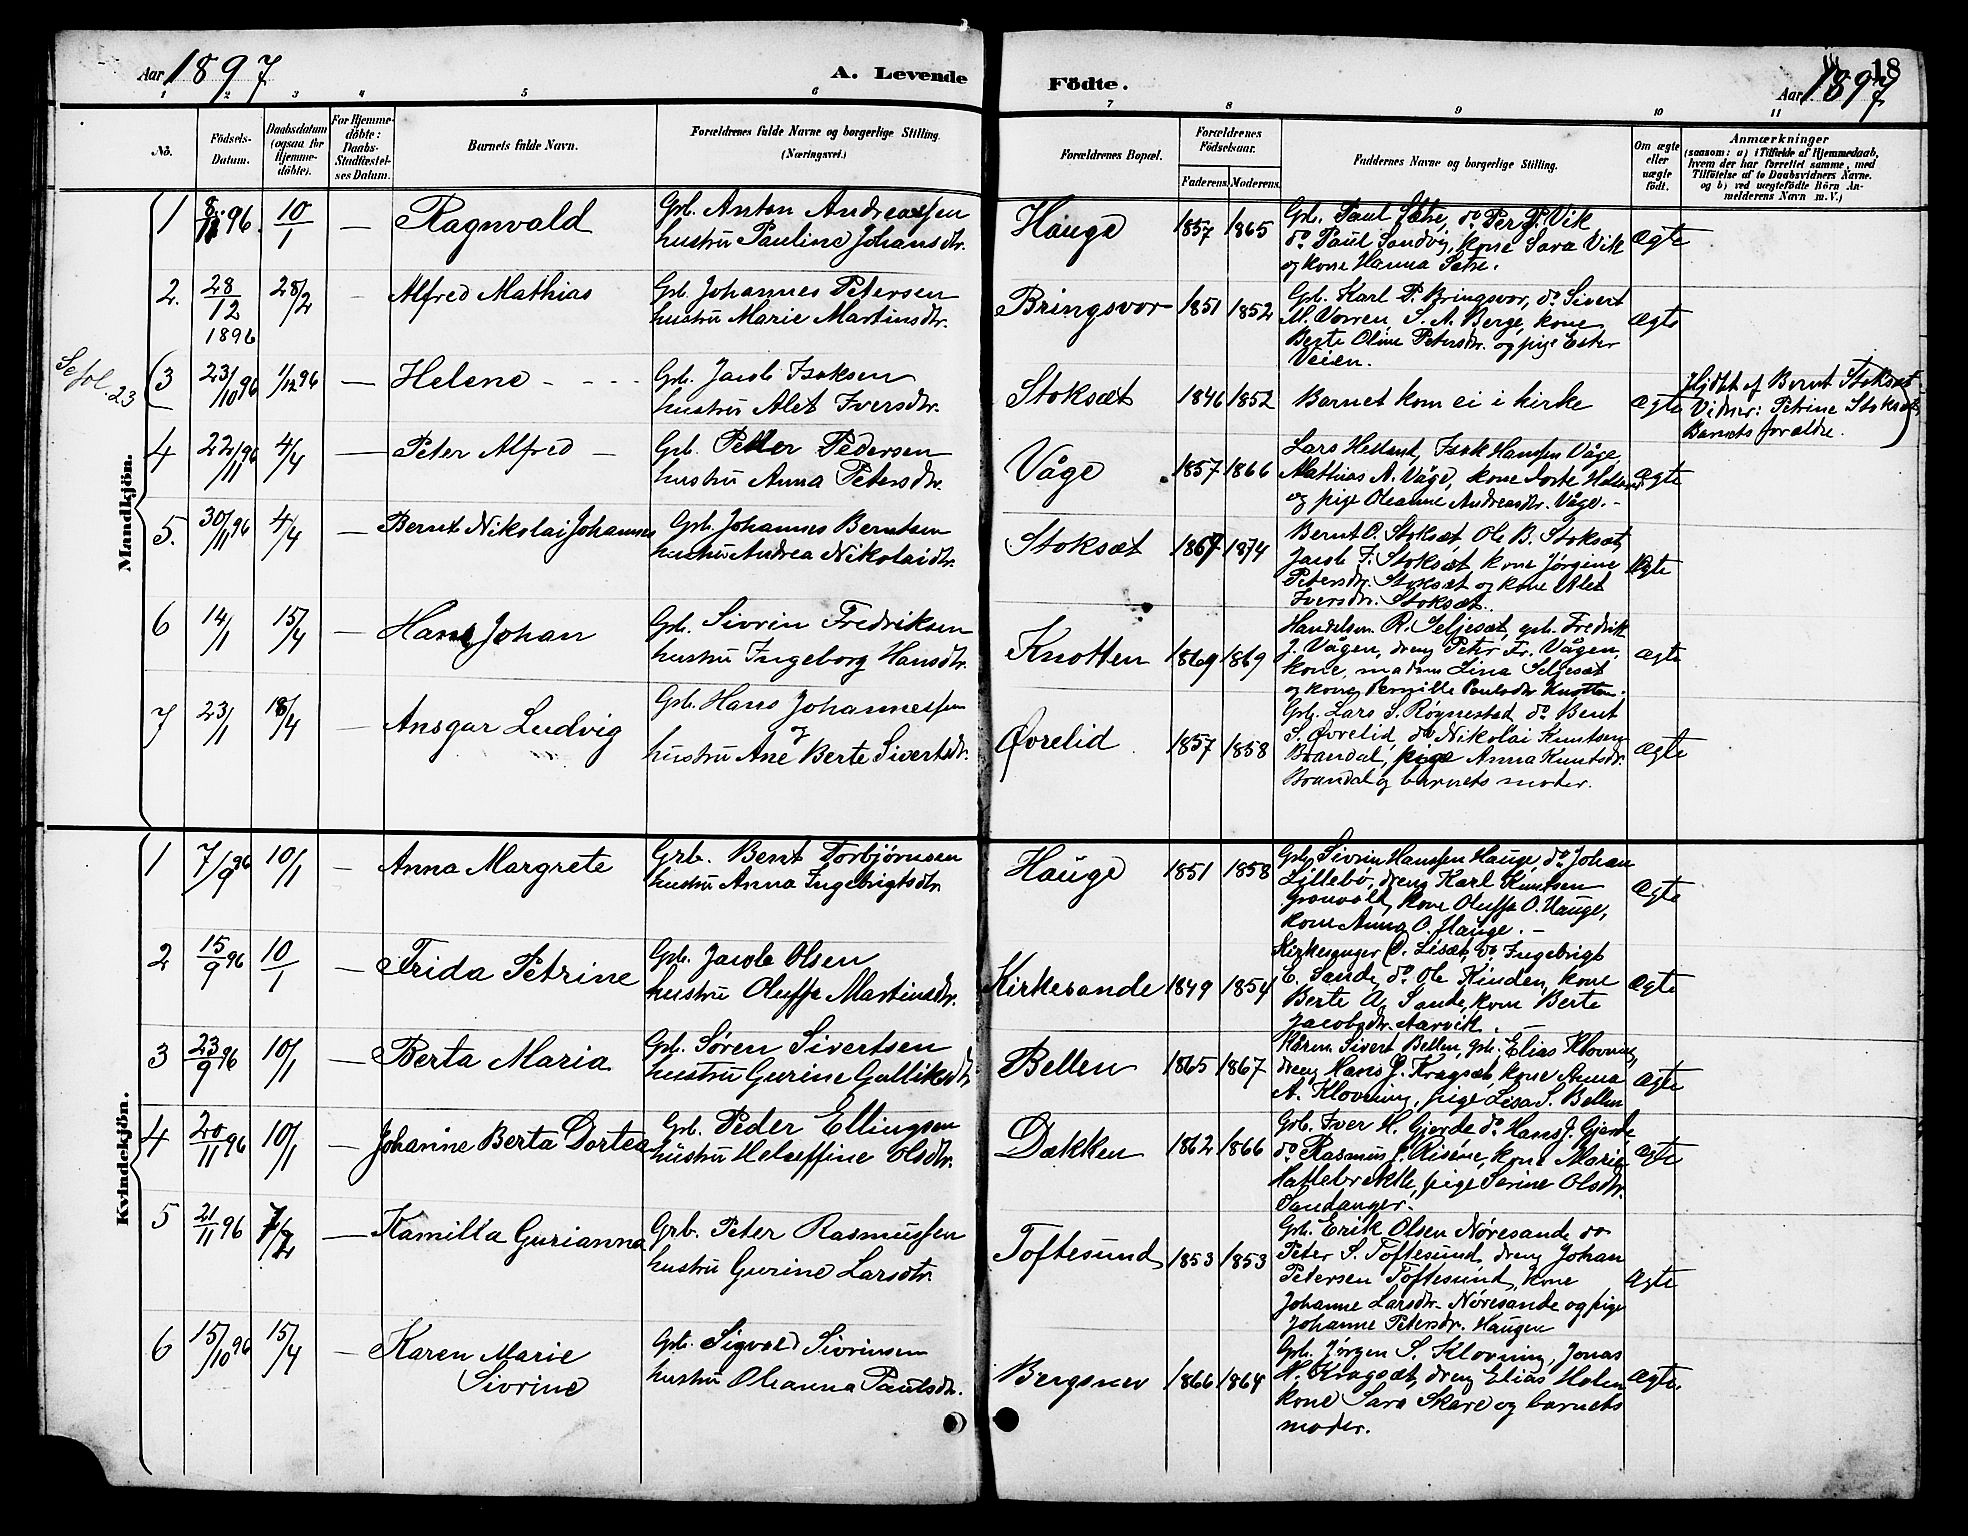 Aar 1897
A. Levende
Födte.
Aar 1897
18
1 2 3 4 5 6 7 8 9 10 11
No.
Födsels-
Datum.
Daabsdatum
(ogsaa for
Hjemme-
döbte).
For Hjemme-
döbte:
Daabs-
Stadfæstel-
ses Datum.
Barnets fulde Navn.
Forældrenes fulde Navne og borgerlige Stilling.
(Næringsvei.)
Forældrenes Bopæl.
Forældrenes
Födselsaar.
Faderens. Moderens.
Faddernes Navne og borgerlige Stilling.
Om ægte
eller
uægte
födt.
Anmærkninger
(saasom: a) i Tilfælde af Hjemmedaab,
hvem der har forrettet samme, med
Tilföielse af to Daabsvidners Navne.
og b) ved uægtefödte Börn An-
melderens Navn m.V.)
Mandkjön.
1 8/12 96. 10/1 — Ragnvald
Grb. Anton Andreassen
hustru Pauline Johansdtr.
Hauge 1857 1865
Grb. Paul Sætre, do Per P. Vik
do Paul Sandvig, kone Sara Vik
og kone Hanna Sætre.
Ægte
2. 28/12 1896 28/2 — Alfred Mathias
Grb. Johannes Petersen
hustru Marie Martinsdtr.
Bringsvor 1851 1852
Grb. Karl P. Bringsvor, do Sivert
M. Vorren, S. A. Berge, kone
Berte Oline Petersdtr. og pige Ester
Veien.
Ægte
Se fol. 23
3 23/10 96 1/12 96 — Helene - - - -
Grb. Jacob Isaksen
hustru Alet Iversdtr.
Stoksæt 1846 1852
Barnet kom ei i kirke
Ægte
Hjdbt af Bernt Stoksæt
Vidner: Petrine Stoksæt
Barnets forældre.
4 22/11 96 4/4 — Peter Alfred —
Grb. Petter Pedersen
hustru Anna Petersdtr.
Våge 1857 1866
Lars Helland, Isak Hansen Våge,
Mathias A. Våge, kone Dorte Helland
og pige Oleanne Andreasdtr. Våge. -
Ægte
5. 30/11 96 4/4 — Bernt Nikolai Johannes
Grb. Johannes Berntsen
hustru Andrea Nikolaidtr.
Stoksæt 1867 1874
Bernt O. Stoksæt, Ole B. Stoksæt,
Jacob I. Stoksæt, kone Jørgine
Petersdtr. Stoksæt og kone Alet
Iversdtr. Stoksæt.
Ægte
6 14/1 15/4 — Hans Johan
Grb. Sivrin Fredriksen
hustru Ingeborg Hansdtr.
Knotten 1869 1869
Handelsm. R. Seljesæt, grb. Fredrik
J. Vågen, dreng Peter Fr. Vågen,
kone, madam Lina Seljesæt
og kone Pernille Paulsdtr Knotten.
Ægte
7 23/1 18/4 — Ansgar Ludvig
Grb. Hans Johannessen
og
hustru Ane Berte Sivertsdtr.
Øvrelid 1857 1858
Grb. Lars S. Røgnestad do Bent
S. Øvrelid, do Nikolai Knutsen
Brandal, pige Anna Knutsdtr.
Brandal og barnets moder.
Ægte
Kvindekjön.
1 7/9 96 10/1 — Anna Margrete
Grb. Bent Torbjørnsen
hustru Anna Ingebrigtsdtr.
Hauge 1851 1858
Grb. Sivrin Hanssen Hauge, do Johan
Lillebø, dreng Karl Knutsen
Grønvold, kone Oluffa O. Hauge,
kone Anna O. Hauge. —
Ægte
2 15/9 96 10/1 — Frida Petrine
Grb. Jacob Olsen
hustru Oluffa Martinsdtr.
Kirkesande 1849 1854
Kirkesanger O. Lisæt, do Ingebrigt
E. Sande, do Ole Kinden, kone
Berte A. Sande, kone Berte
Jacobsdtr. Aarvik. —
Ægte
3 23/9 96 10/1 — Berta Maria
Grb. Søren Sivertsen
hustru Gurine Gulliksdtr
Bellen 1865 1867
Kårm. Sivert Bellen, grb. Elias Klovning,
dreng Hans J. Kragsæt, kone Anna
A. Klovning, pige Lisa S. Bellen
Ægte
4 20/11 96 10/1 — Johanne Berta Dortea
Grb. Peder Ellingsen
hustru Helseffine Olsdtr.
Dækken 1862 1866
Grb. Iver H. Gjerde do Hans J. Gjerde,
do Rasmus J. Risöne, kone Marie
Hatlebrekke, pige Serine Olsdtr.
Sandanger.
Ægte
5 21/11 96 7/2 — Kamilla Gurianna
Grb. Peter Rasmussen
hustru Gurine Larsdtr.
Toftesund 1853 1853
Grb. Erik Olsen Nøresande do
Peter S. Toftesund, dreng Johan
Petersen Toftesund, kone
Johanne Larsdtr. Nøresande og pige
Johanne Petersdtr. Haugen
Ægte
6 15/10 96 15/4 — Karen Marie
Sivrine
Grb. Sigvald Sivrinsen
hustru Oleanna Paulsdtr.
Bergsnev 1866 1864
Grb. Jørgen S. Klovning, Jonas
H. Kragsæt, dreng Elias Holen
kone Sara Skare og barnets
moder.
Ægte.